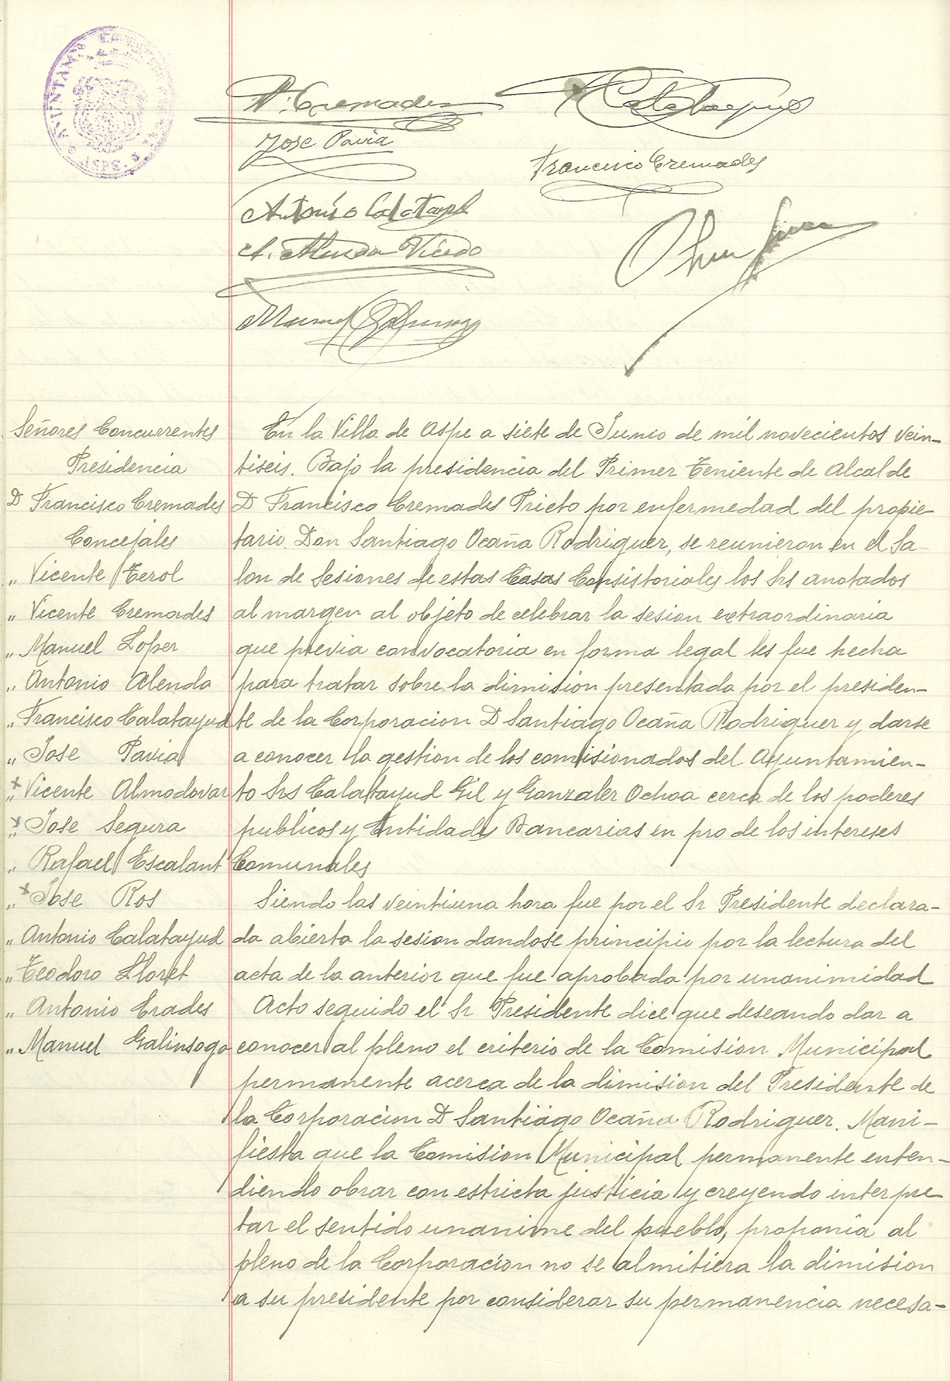 V. Cremades
Calatayud
Jose Pavia
Francisco Cremades
Antonio Calatayud
A. Alenda Vicedo
Manuel Galinsogo
Señores Concurrentes
Presidencia
D Francisco Cremades
Concejales
„ Vicente Terol
„ Vicente Cremades
„ Manuel Loper
„ Antonio Alenda
„ Francisco Calatayud
„ Jose Pavia
„ x Vicente Almodovar
„ x Jose Segura
„ Rafael Escalant
„ x Jose Ros
„ Antonio Calatayud
„ Teodoro Lloret
„ Antonio Erades
„ Manuel Galinsogo
En la Villa de Aspe a siete de Junio de mil novecientos vein-
tiseis. Bajo la presidencia del Primer Teniente de Alcalde
D Francisco Cremades Prieto por enfermedad del propie-
tario. Don Santiago Ocaña Rodriguer, se reunieron en el Sa-
lon de Sesiones de estas Casas Consistoriales los Srs anotados
al margen al objeto de celebrar la sesion extraordinaria
que previa convocatoria en forma legal les fue hecha
para tratar sobre la dimision presentada por el presiden-
te de la Corporacion D Santiago Ocaña Rodriguer y darse
a conocer la gestion de los comisionados del Ayuntamien-
to Srs Calatayud Gil y Gonzaler Ochoa cerca de los poderes
publicos y Entidads Bancarias en pro de los intereses
Comunales
Siendo las veintiuna hora fue por el Sr Presidente declara-
da abierta la sesion dandose principio por la lectura del
acta de la anterior que fue aprobada por unanimidad
Acto seguido el Sr Presidente dice que deseando dar a
conocer al pleno el criterio de la Comision Municipal
permanente acerca de la dimision del Presidente de
la Corporacion D Santiago Ocaña Rodriguer. Mani-
fiesta que la Comision Municipal permanente enten-
diendo obrar con estricta justicia y creyendo interpre-
tar el sentido unanime del pueblo, proponia al
pleno de la Corporacion no se almitiera la dimision
a su presidente por considerar su permanencia necesa-